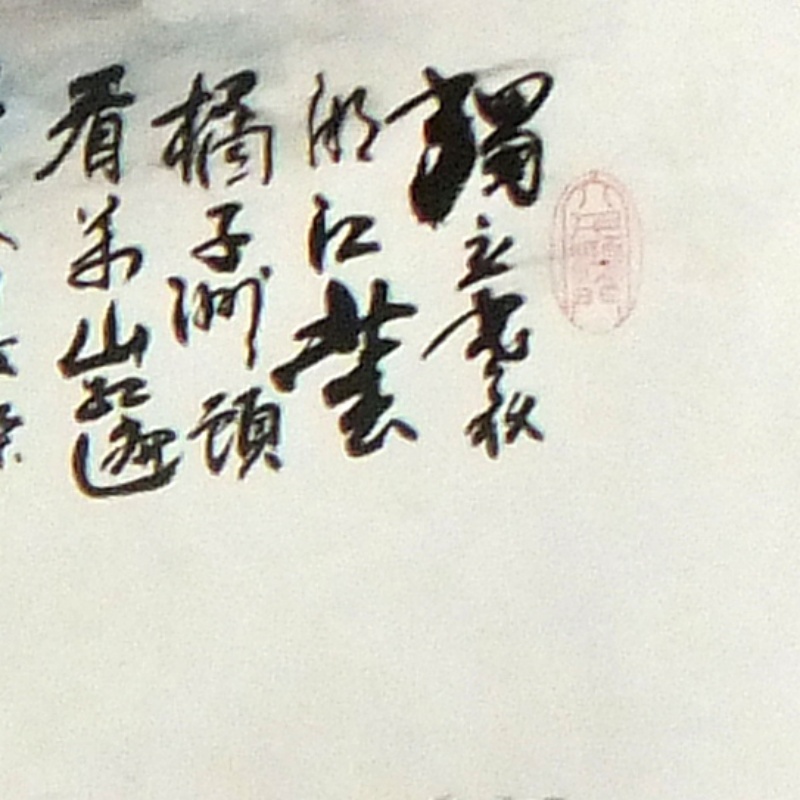 獨立寒秋
湘江北去
橘子洲頭
看萬山紅遍